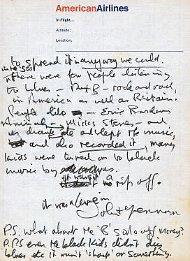 AmericanAirlines
In Flight...
Altitude
Location
to spread it anyway we could.
in the 50s/
there were few people listening
to blues – R+B – rock and roll,
in America as well as Britain.
People like – Eric Burdon
's Animals – Micks Stones – and
us drank ate and slept the music,
and also recorded it, many
kids were turned on to black
music by us.
it wasn't a rip off.
it was love in
John Lennon
P.S. what about the 'B' side of money?
P.P.S. even the black kids didn't dig
blues etc it wasn't 'sharp' or something.